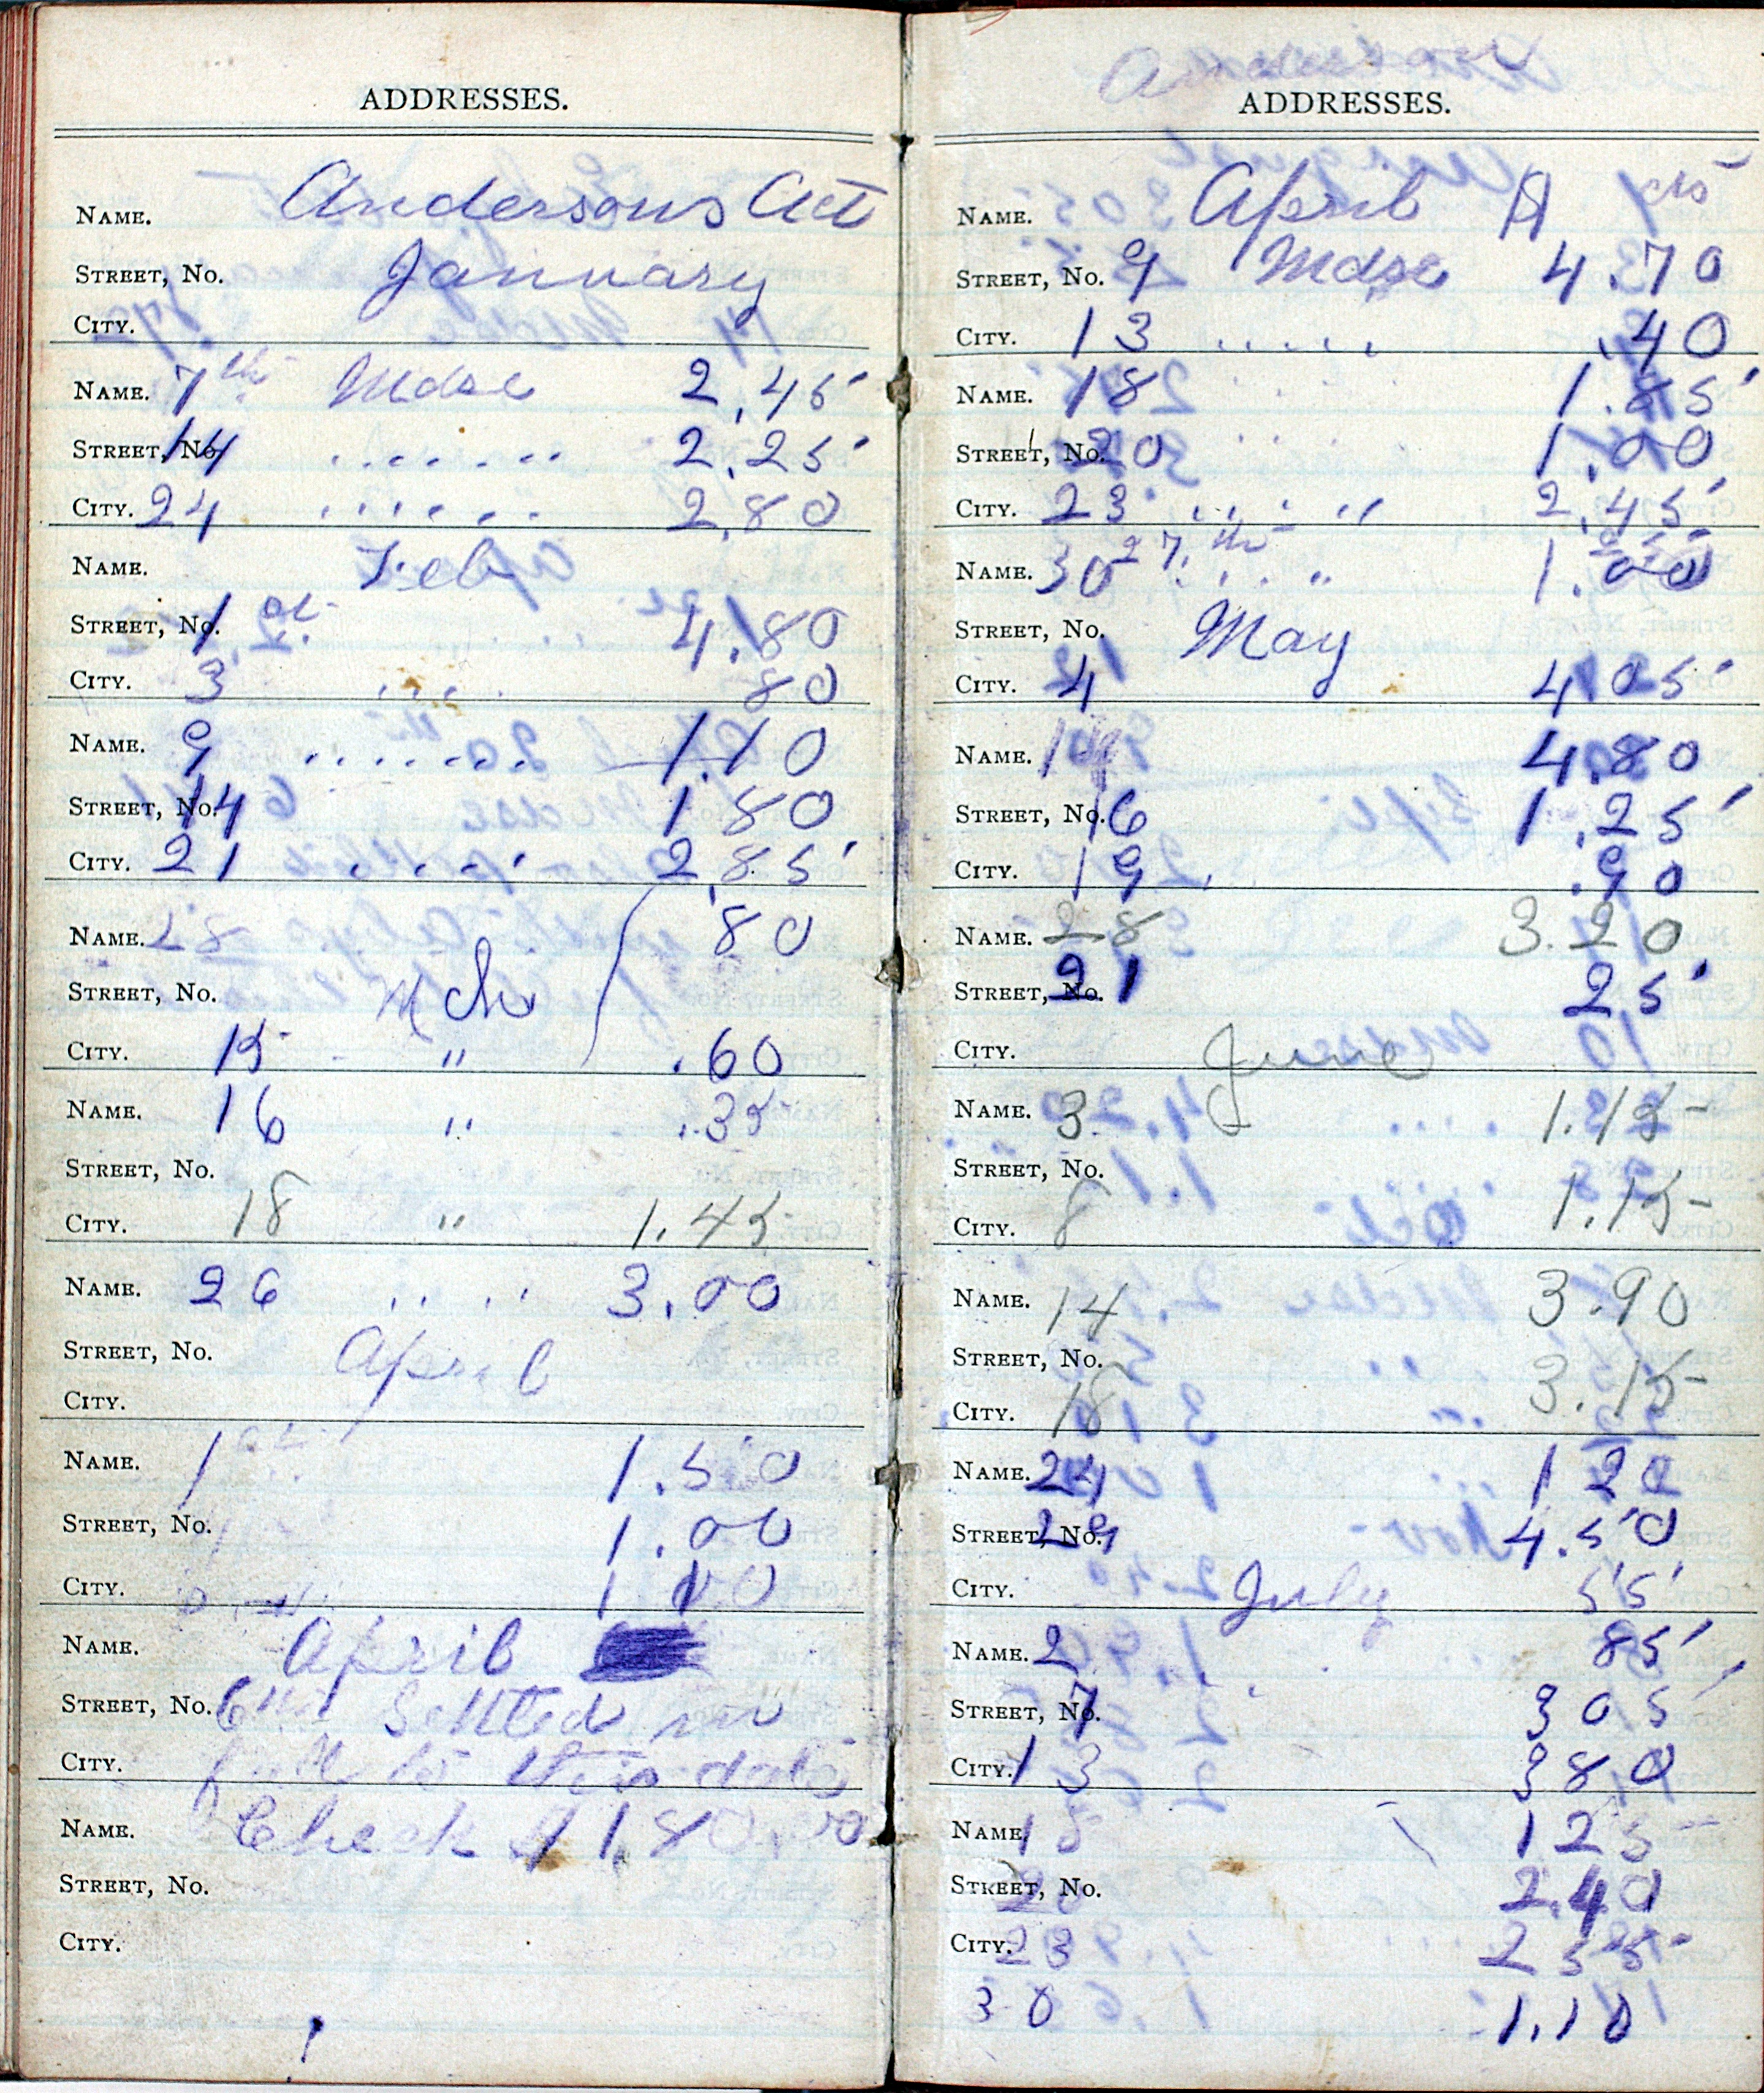 ADDRESSES.
NAME. Andersons Act
STREET, No. January
CITY.
NAME. 7th Mdse 2.45
STREET, No. 14 ....... 2.25
CITY. 24 ...... 2.80
NAME. Feb
STREET, No. 1st 4.80
CITY. 3 .... 80
NAME. 9 ....... 1.10
STREET, No. 14 1 80
CITY. 21 ..... 2.85
NAME. 28 80
STREET, No. Mch
CITY. 15 " .60
NAME. 16 " .35
STREET, No.
CITY. 18 " 1.45
NAME. 26 .... 3.00
STREET, No. April
CITY.
NAME. 1st 1.50
STREET, No. 1.00
CITY.
NAME. April
STREET, No. 6th Settled in
CITY. full to this date
NAME. Check
STREET, No.
CITY.
Anderson
ADDRESSES.
NAME. April $ cts
STREET, No. 9 Mdse 4.70
CITY. 13 ..... .40
NAME. 18 1.85
STREET, No. 20 1.00
CITY. 23 .... " 2.45
NAME. 30 27th .. " 1.00
STREET, No. May
CITY. 4 4.05
NAME. 4.80
STREET, No. 16 1.25
CITY. 19 .90
NAME. 28 3.20
STREET, No. 21 25
CITY. June
NAME. 3 1.15
STREET, No.
CITY. 8 1.15
NAME. 14 3.90
STREET, No.
CITY. 18 3.15
NAME. 24 1 20
STREET, No. 29 4.50
CITY. July 55
NAME. 2 85
STREET, No. 7 3 05
CITY. 13 3 80
NAME. 18 1 25
STREET, No. 20 2.40
CITY. 23 2 55
30 1.10